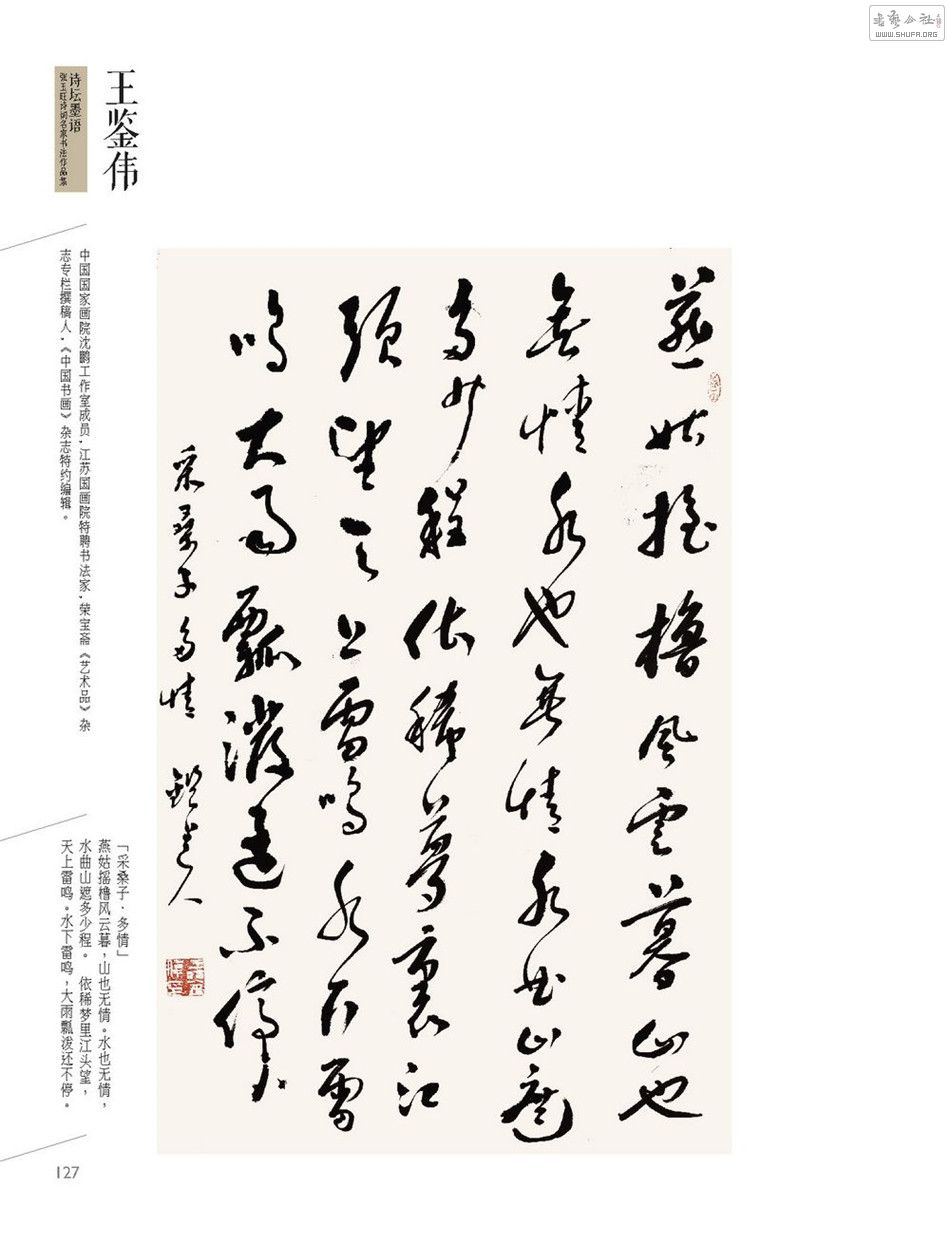 书艺公社
WWW.SHUFA.ORG
王鉴伟
诗坛墨语
张玉旺诗词名家书法作品集
中国国家画院沈鹏工作室成员,江苏国画院特聘书法家,荣宝斋《艺术品》杂
志专栏撰稿人,《中国书画》杂志特约编辑。
燕姑摇橹风云暮山也
无情水也无情水曲山遮
多少程依稀梦里江
头望天上雷鸣水下雷
鸣大雨瓢泼还不停
采桑子多情
「采桑子·多情」
燕姑摇橹风云暮,山也无情。水也无情,
水曲山遮多少程。 依稀梦里江头望,
天上雷鸣。水下雷鸣,大雨瓢泼还不停。
127